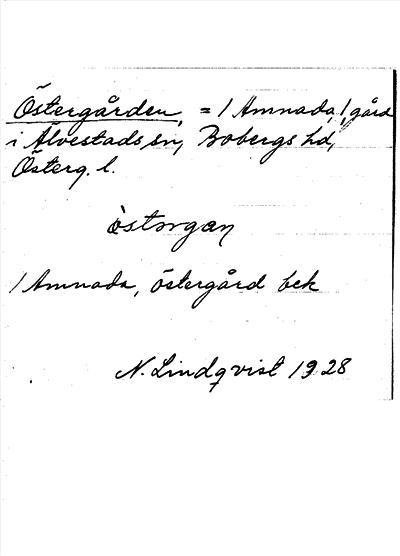 Östergården, = 1 Amnada, 1 gård
i Älvestads sn, Bobergs hd,
Österg. l.
1 Amnada, östergård bek
N. Lindqvist 1928